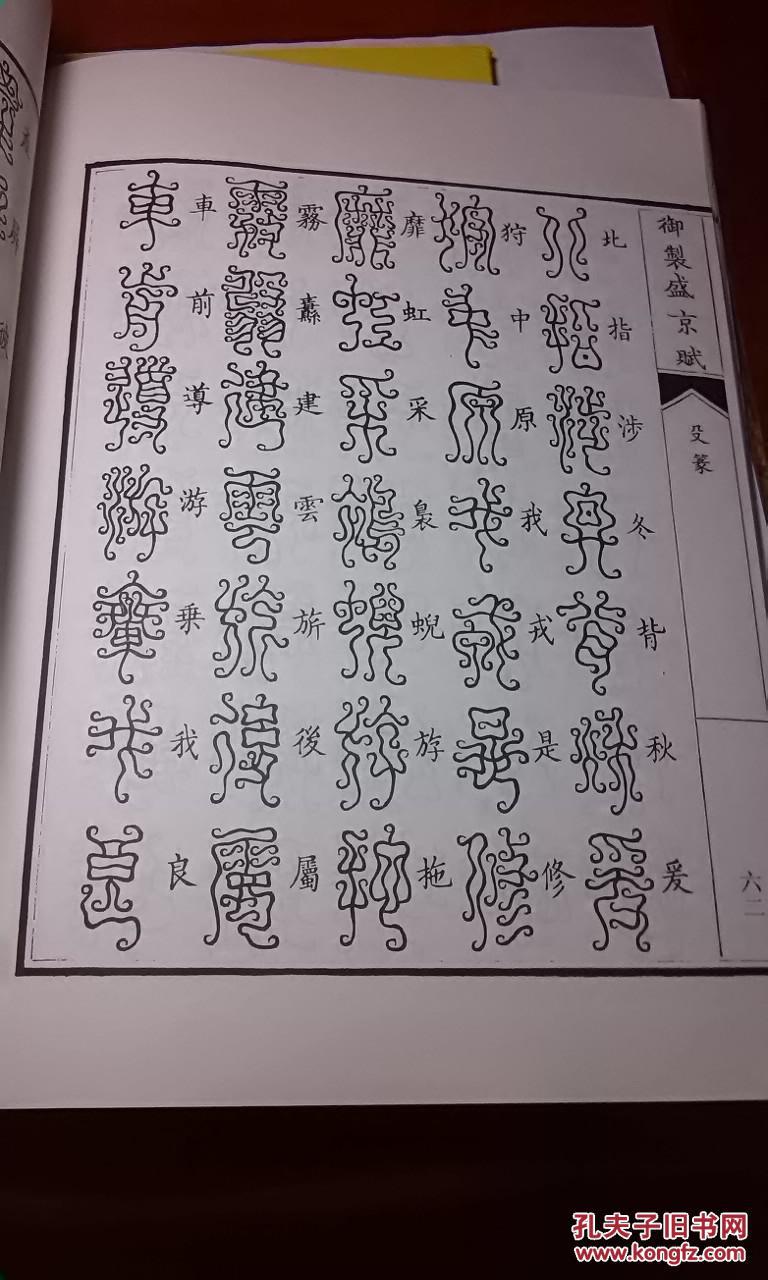 御製盛京賦
殳篆
六二
北指涉冬背秋爰
狩中原我戎是修
靡虹采裊蜺斿拖
霧纛建雲旂後屬
車前導游乗我良
孔夫子旧书网
www.kongfz.com